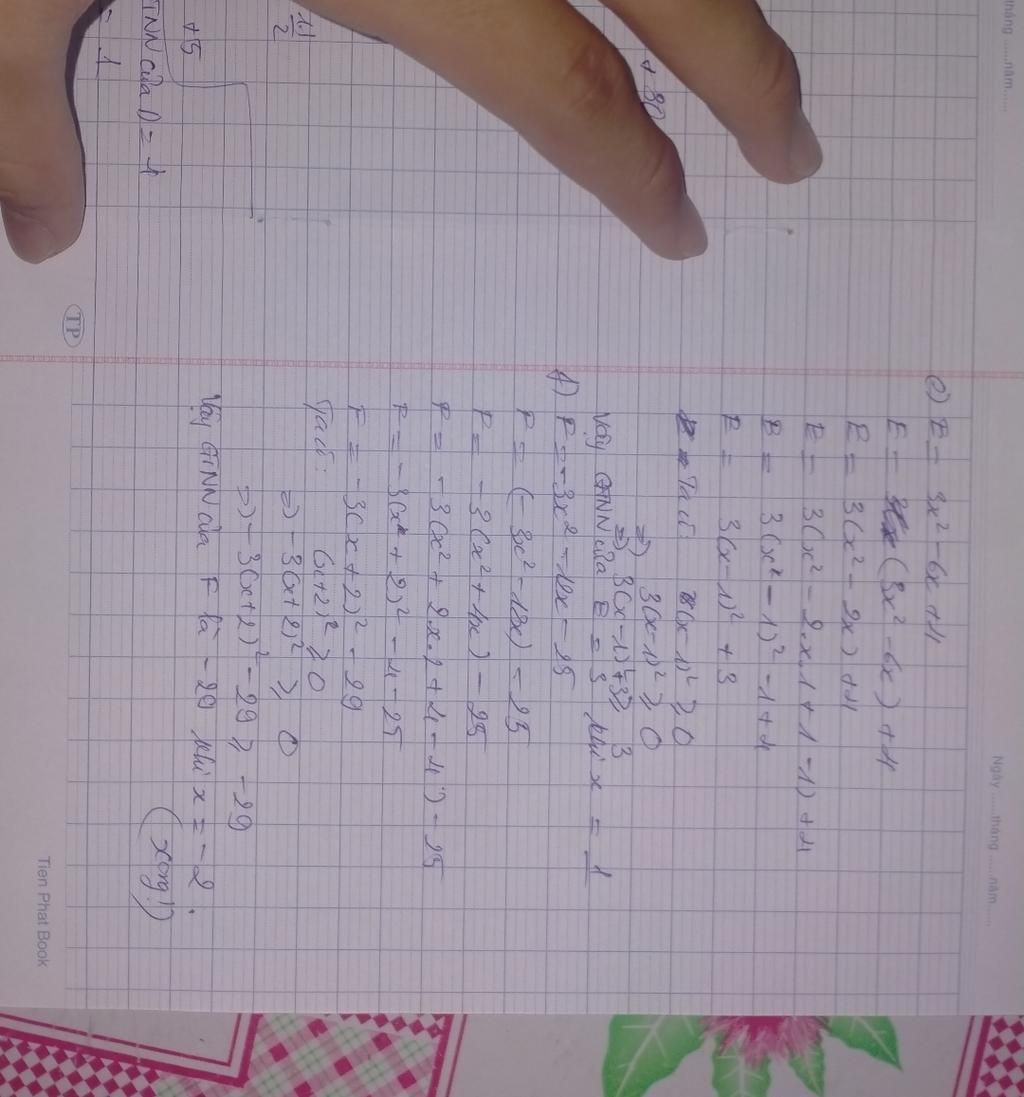 Ngày ..... tháng ..... năm......
tháng ......năm......
e) E = 3x² - 6x + 4
E = (3x² - 6x) + 4
E = 3(x² - 2x) + 4
E = 3(x² - 2.x.1 + 1 - 1) + 4
E = 3(x² - 1)² - 1 + 4
E = 3(x-1)² + 3
Ta có: (x-1)² ≥ 0
=> 3(x-1)² ≥ 0
=> 3(x-1)² + 3 ≥ 3
Vậy GTNN của E = 3 khi x = 1
f) F = -3x² - 12x - 25
F = (-3x² - 12x) - 25
F = -3(x² + 4x) - 25
F = -3(x² + 2x.2 + 4 - 4) - 25
F = -3(x + 2)² - 4 - 25
F = -3(x+2)² - 29
Ta có: (x+2)² ≥ 0
=> -3(x+2)² ≥ 0
=> -3(x+2)² - 29 ≥ -29
Vậy GTNN của F là -29 khi x = -2.
(xong!)
11
2
+5
TNN của D = 1
= 1
TP
Tien Phat Book